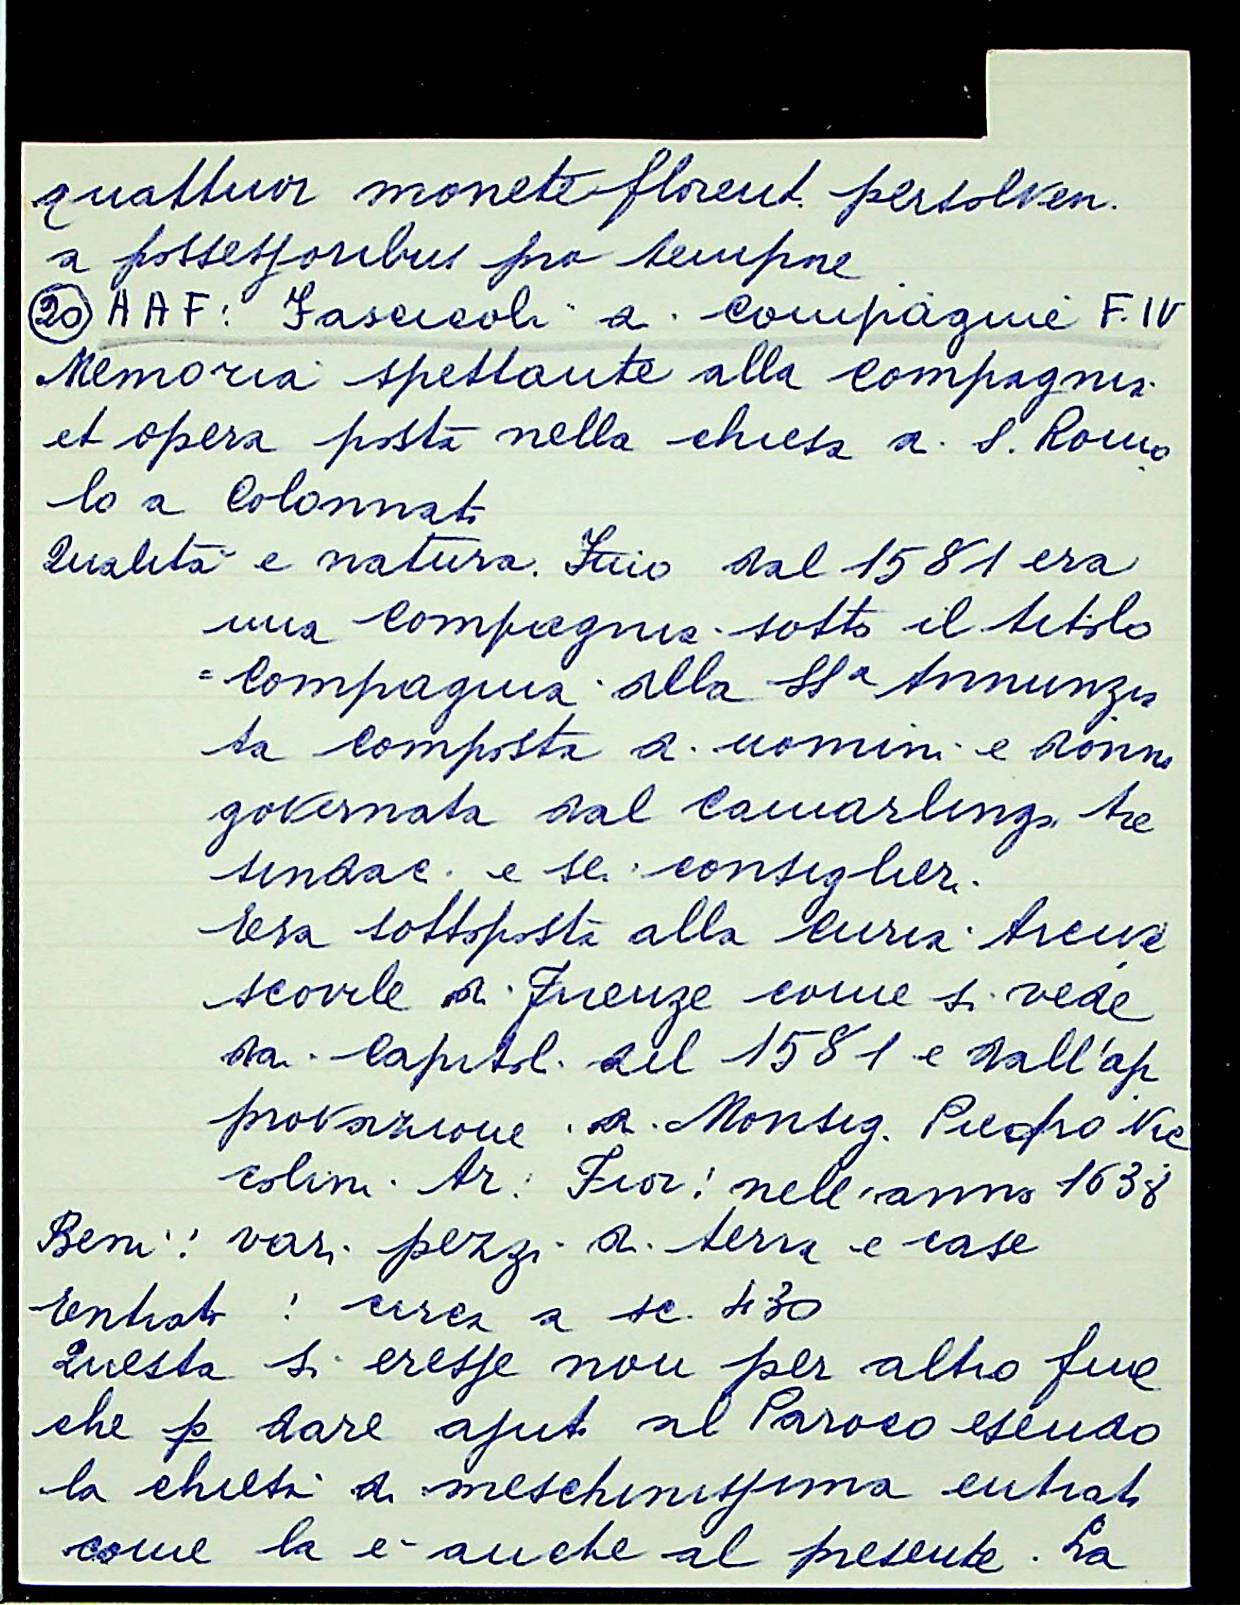 quattuor monete florent. persolven.
a possessoribus pro tempore
20 AAF: Fascicoli di compagnie F. IV
Memoria spettante alla compagnia
et opera posta nella chiesa di S. Romo
lo a Colonnata
Qualità e natura. Fino dal 1581 era
una compagnia sotto il titolo
= Compagnia della SSa Annunzia
ta composta di uomini e donne
governata dal Camarlingo tre
sindaci e sei consiglieri.
Era sottoposta alla Curia Arcive
scovile di Firenze come si vede
dai Capitoli del 1581 e dall'ap
provazione di Monsig. Piedro Nic
colini Ar: Fior: nell'anno 1638
Beni: vari pezzi di terra e case
Entrata: circa a sc. 430
Questa si eresse non per altro fine
che p dare ajuto al Paroco essendo
la chiesa di meschinissima entrata
come la è anche al presente. La